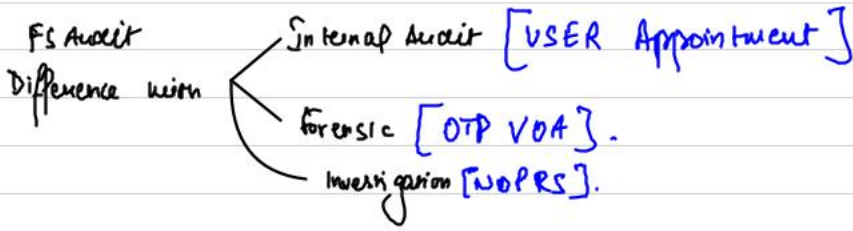 FS Audit
Difference with
Internal Audit [USER Appointment]
Forensic [OTP VOA].
Investigation [NOPRS].